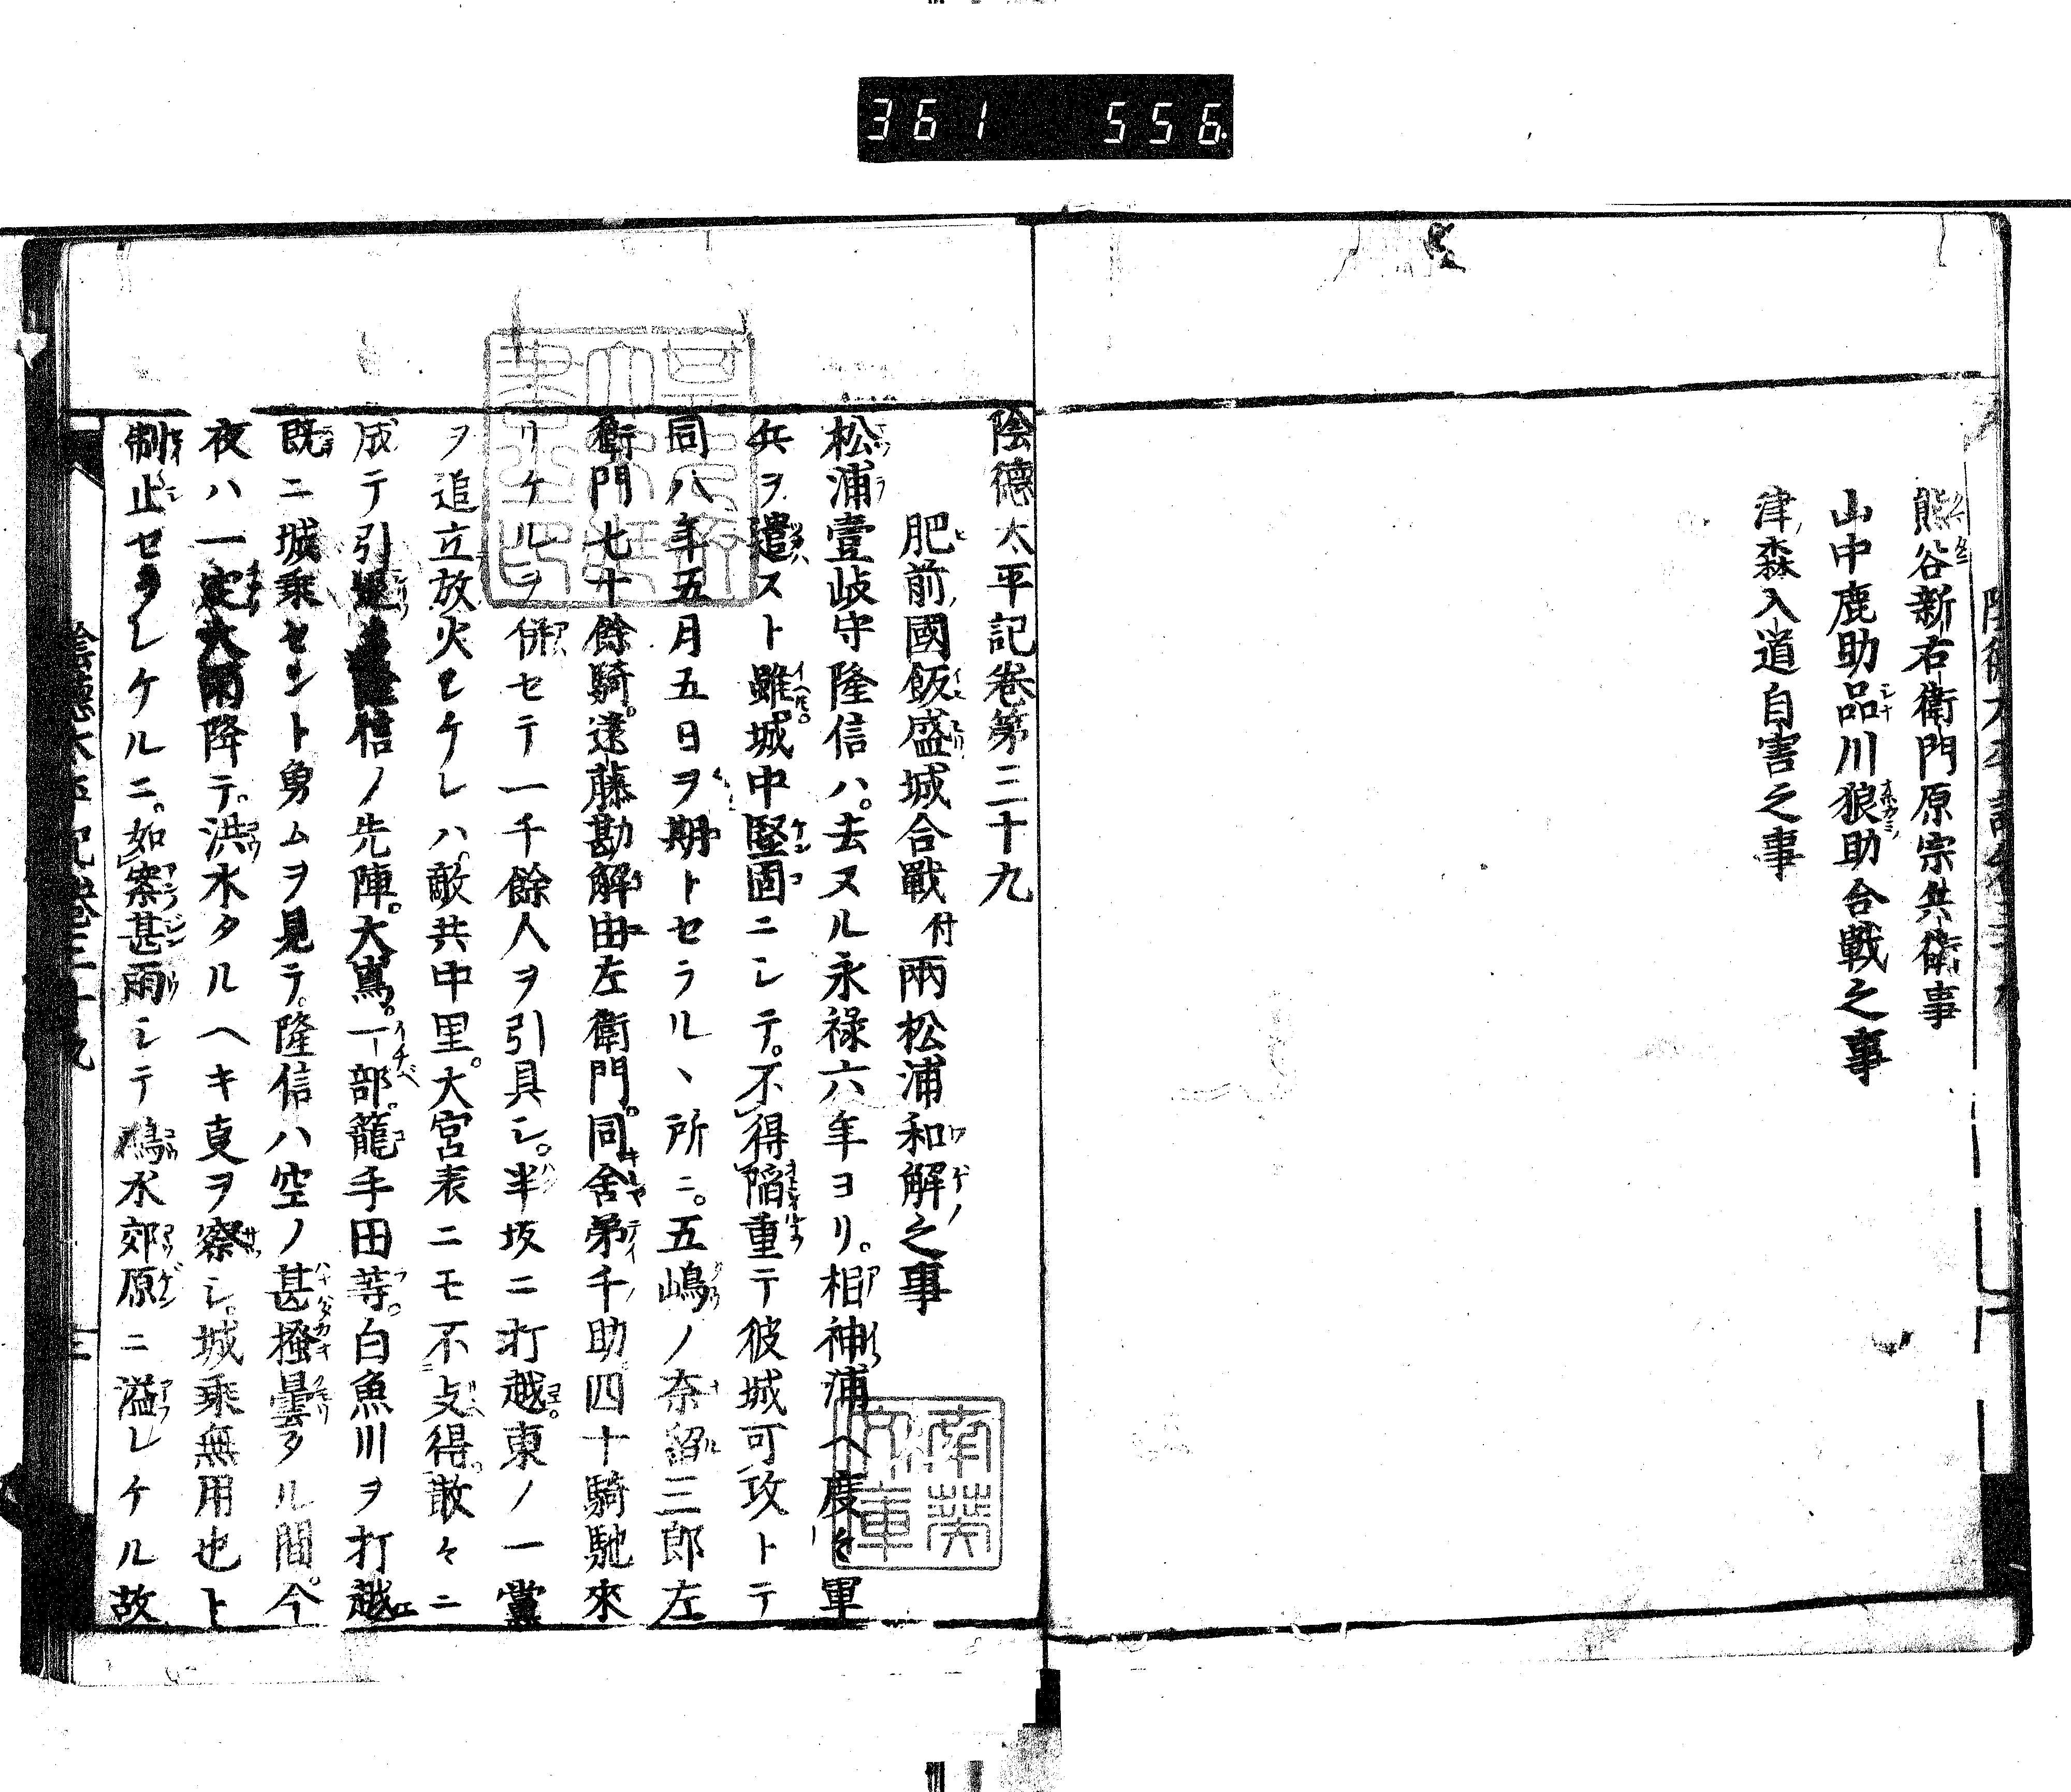 361 556
熊谷新右衛門原宗兵衛事
山中鹿助品川狼助合戦之事
津森入道自害之事
陰德太平記卷第三十九
肥前國飯盛城合戰付兩松浦和解之事
松浦壹岐守隆信ハ。去ヌル永祿六年ヨリ。相神浦ヘ度々軍
兵ヲ遣スト雖。城中堅固ニシテ。不得陷重テ彼城可攻トテ
同八年五月五日ヲ期トセラルヽ所ニ。五嶋ノ奈留三郎左
衛門七十餘騎。遠藤勘解由左衛門。同舍弟千助四十騎馳來
リケルヲ併セテ一千餘人ヲ引具シ。半坂ニ打越。東ノ一黨
ヲ追立放火シケレハ。敵共中里。大宮表ニモ不支得。散々ニ
成テ引退隆信ノ先陣。大嶌。一部。籠手田等。白魚川ヲ打越
既ニ城乘セント勇ムヲ見テ。隆信ハ空ノ甚搔曇タル間。今
夜ハ一定大雨降テ。洪水タルヘキ叓ヲ察シ。城乘無用也ト
制止セラレケルニ。如案甚雨シテ水郊原ニ溢レケル故
陰德太平記卷三十九
三